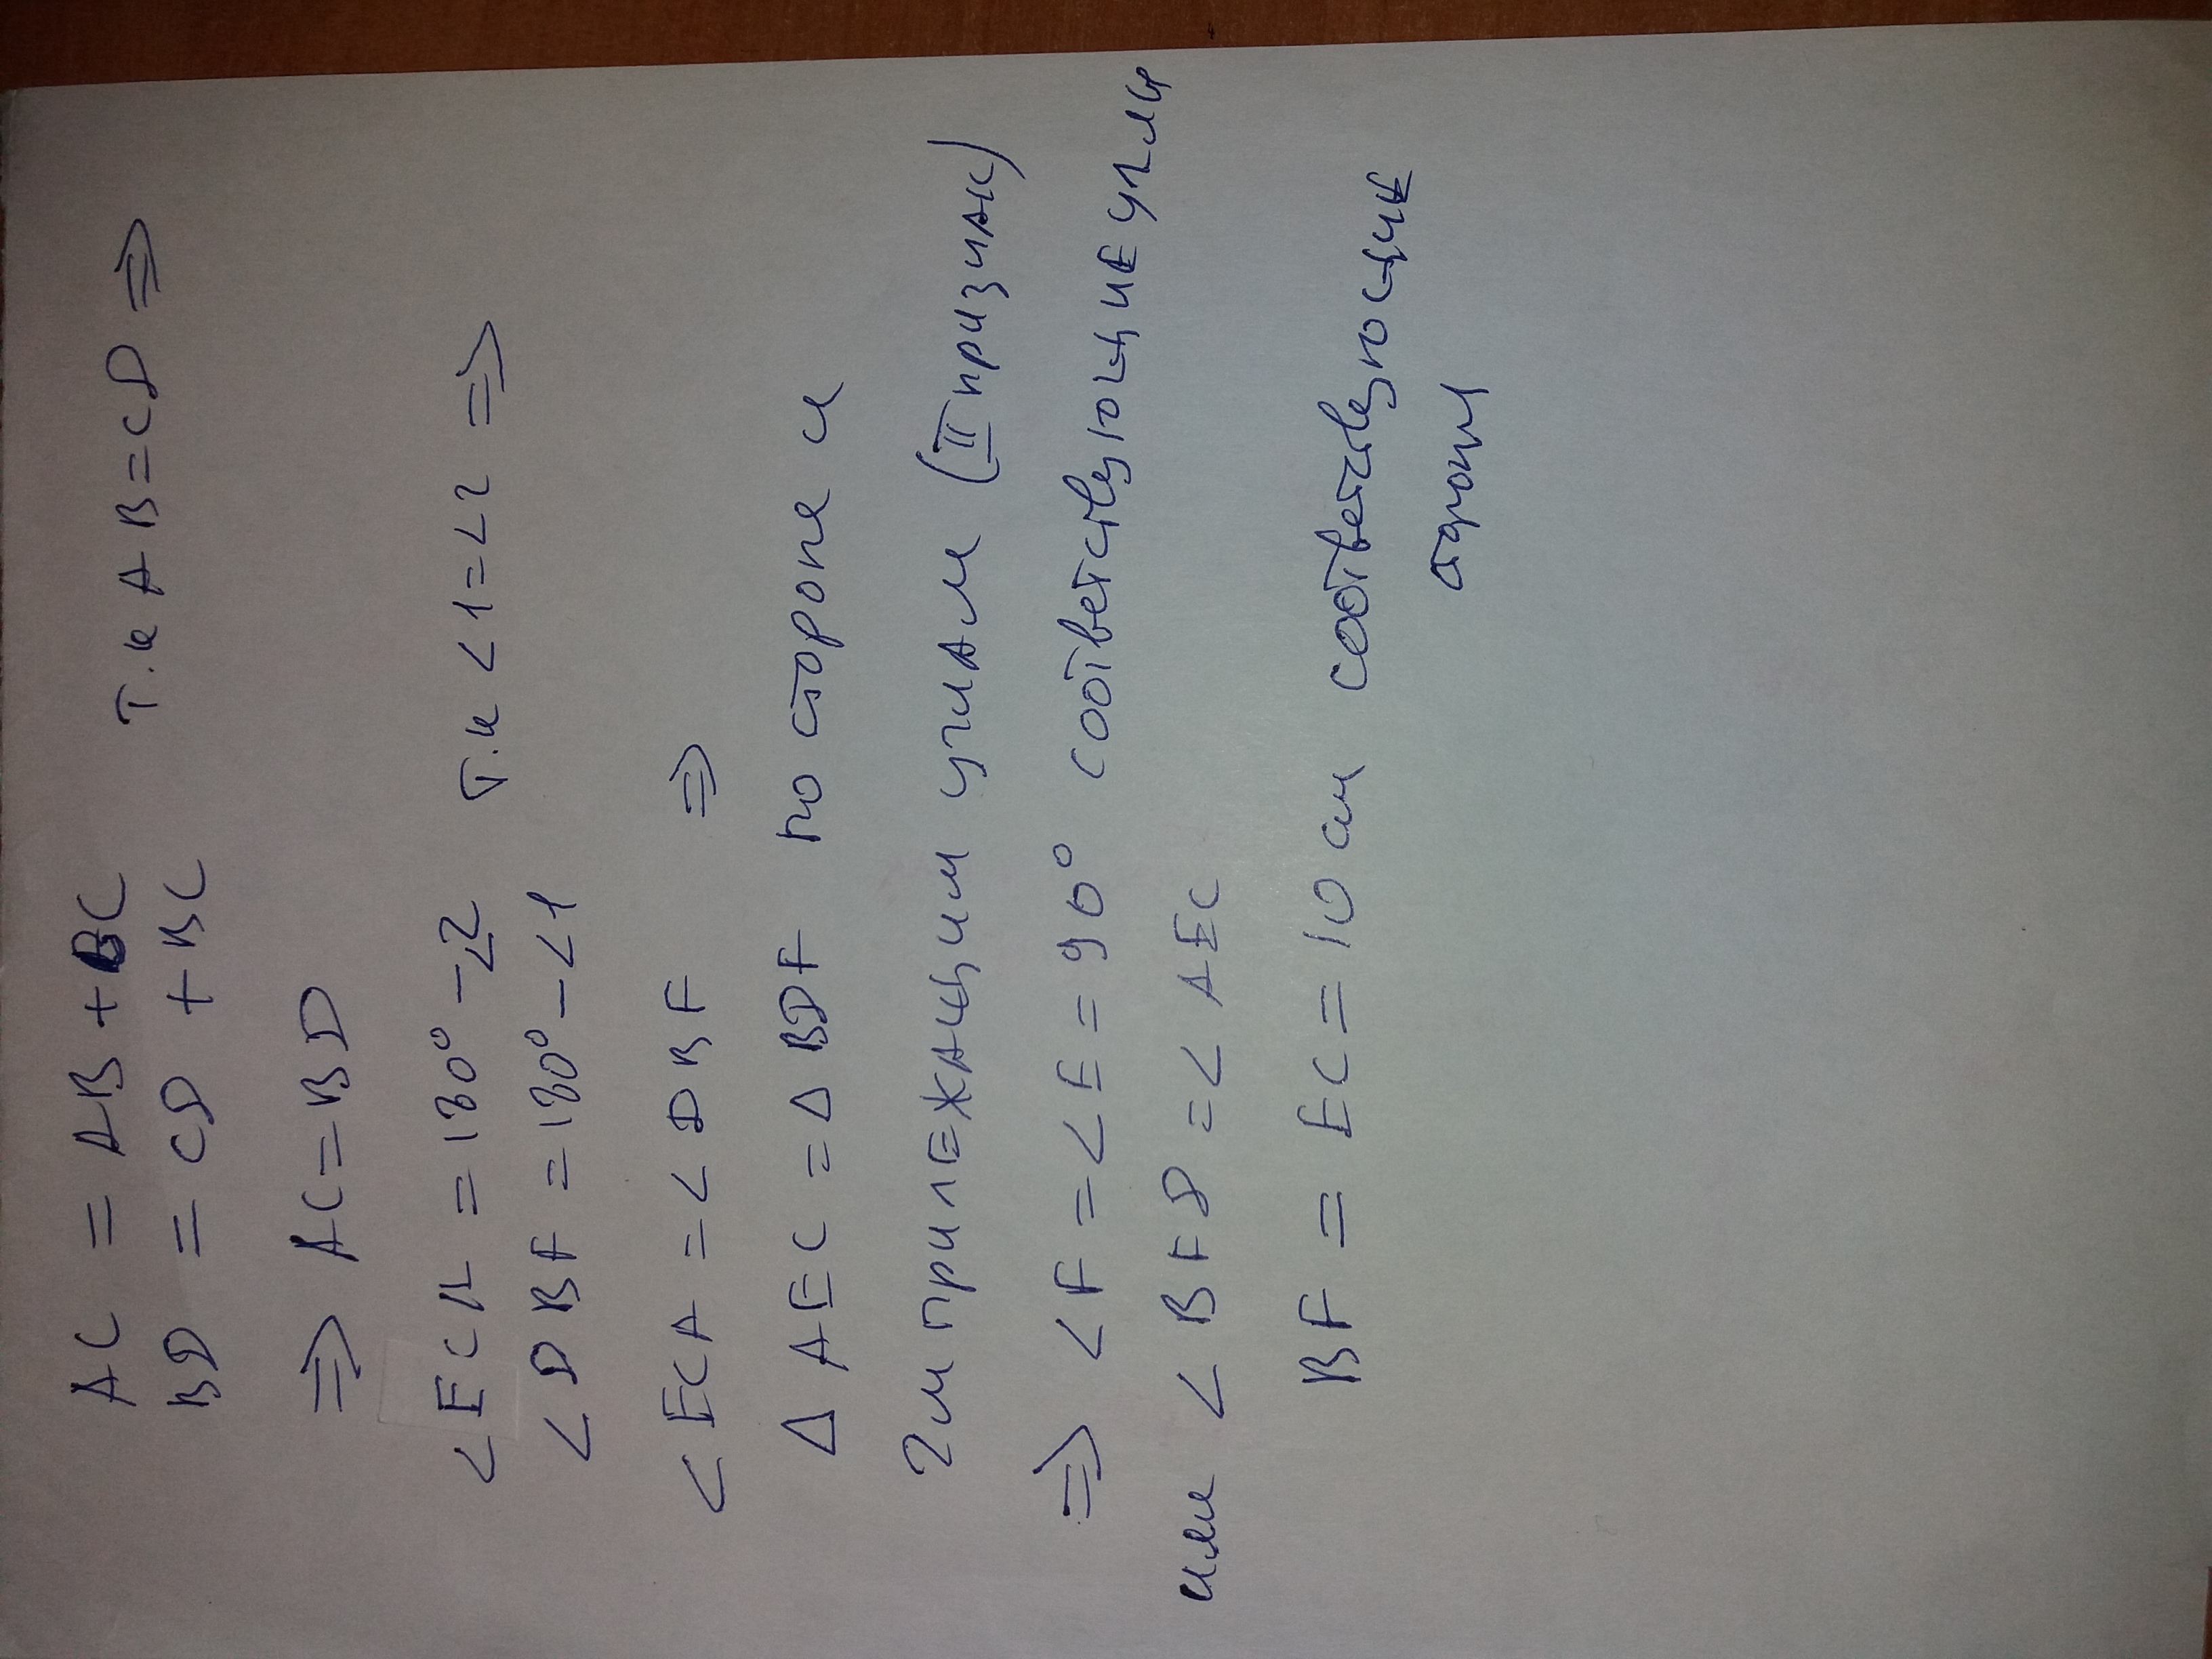 AC = AB + BC т.к AB = CD ⇒
BD = CD + BC
⇒ AC = BD
<ECA = 180° - <2 т.к <1 = <2 ⇒
<DBF = 180° - <1
<ECA = <DBF ⇒
Δ AEC = Δ BDF по стороне и
2м прилежащим углам (II признак)
⇒ <F = <E = 90° соответствующие углы
или <BFD = <AEC
BF = EC = 10 см соответствующие
стороны